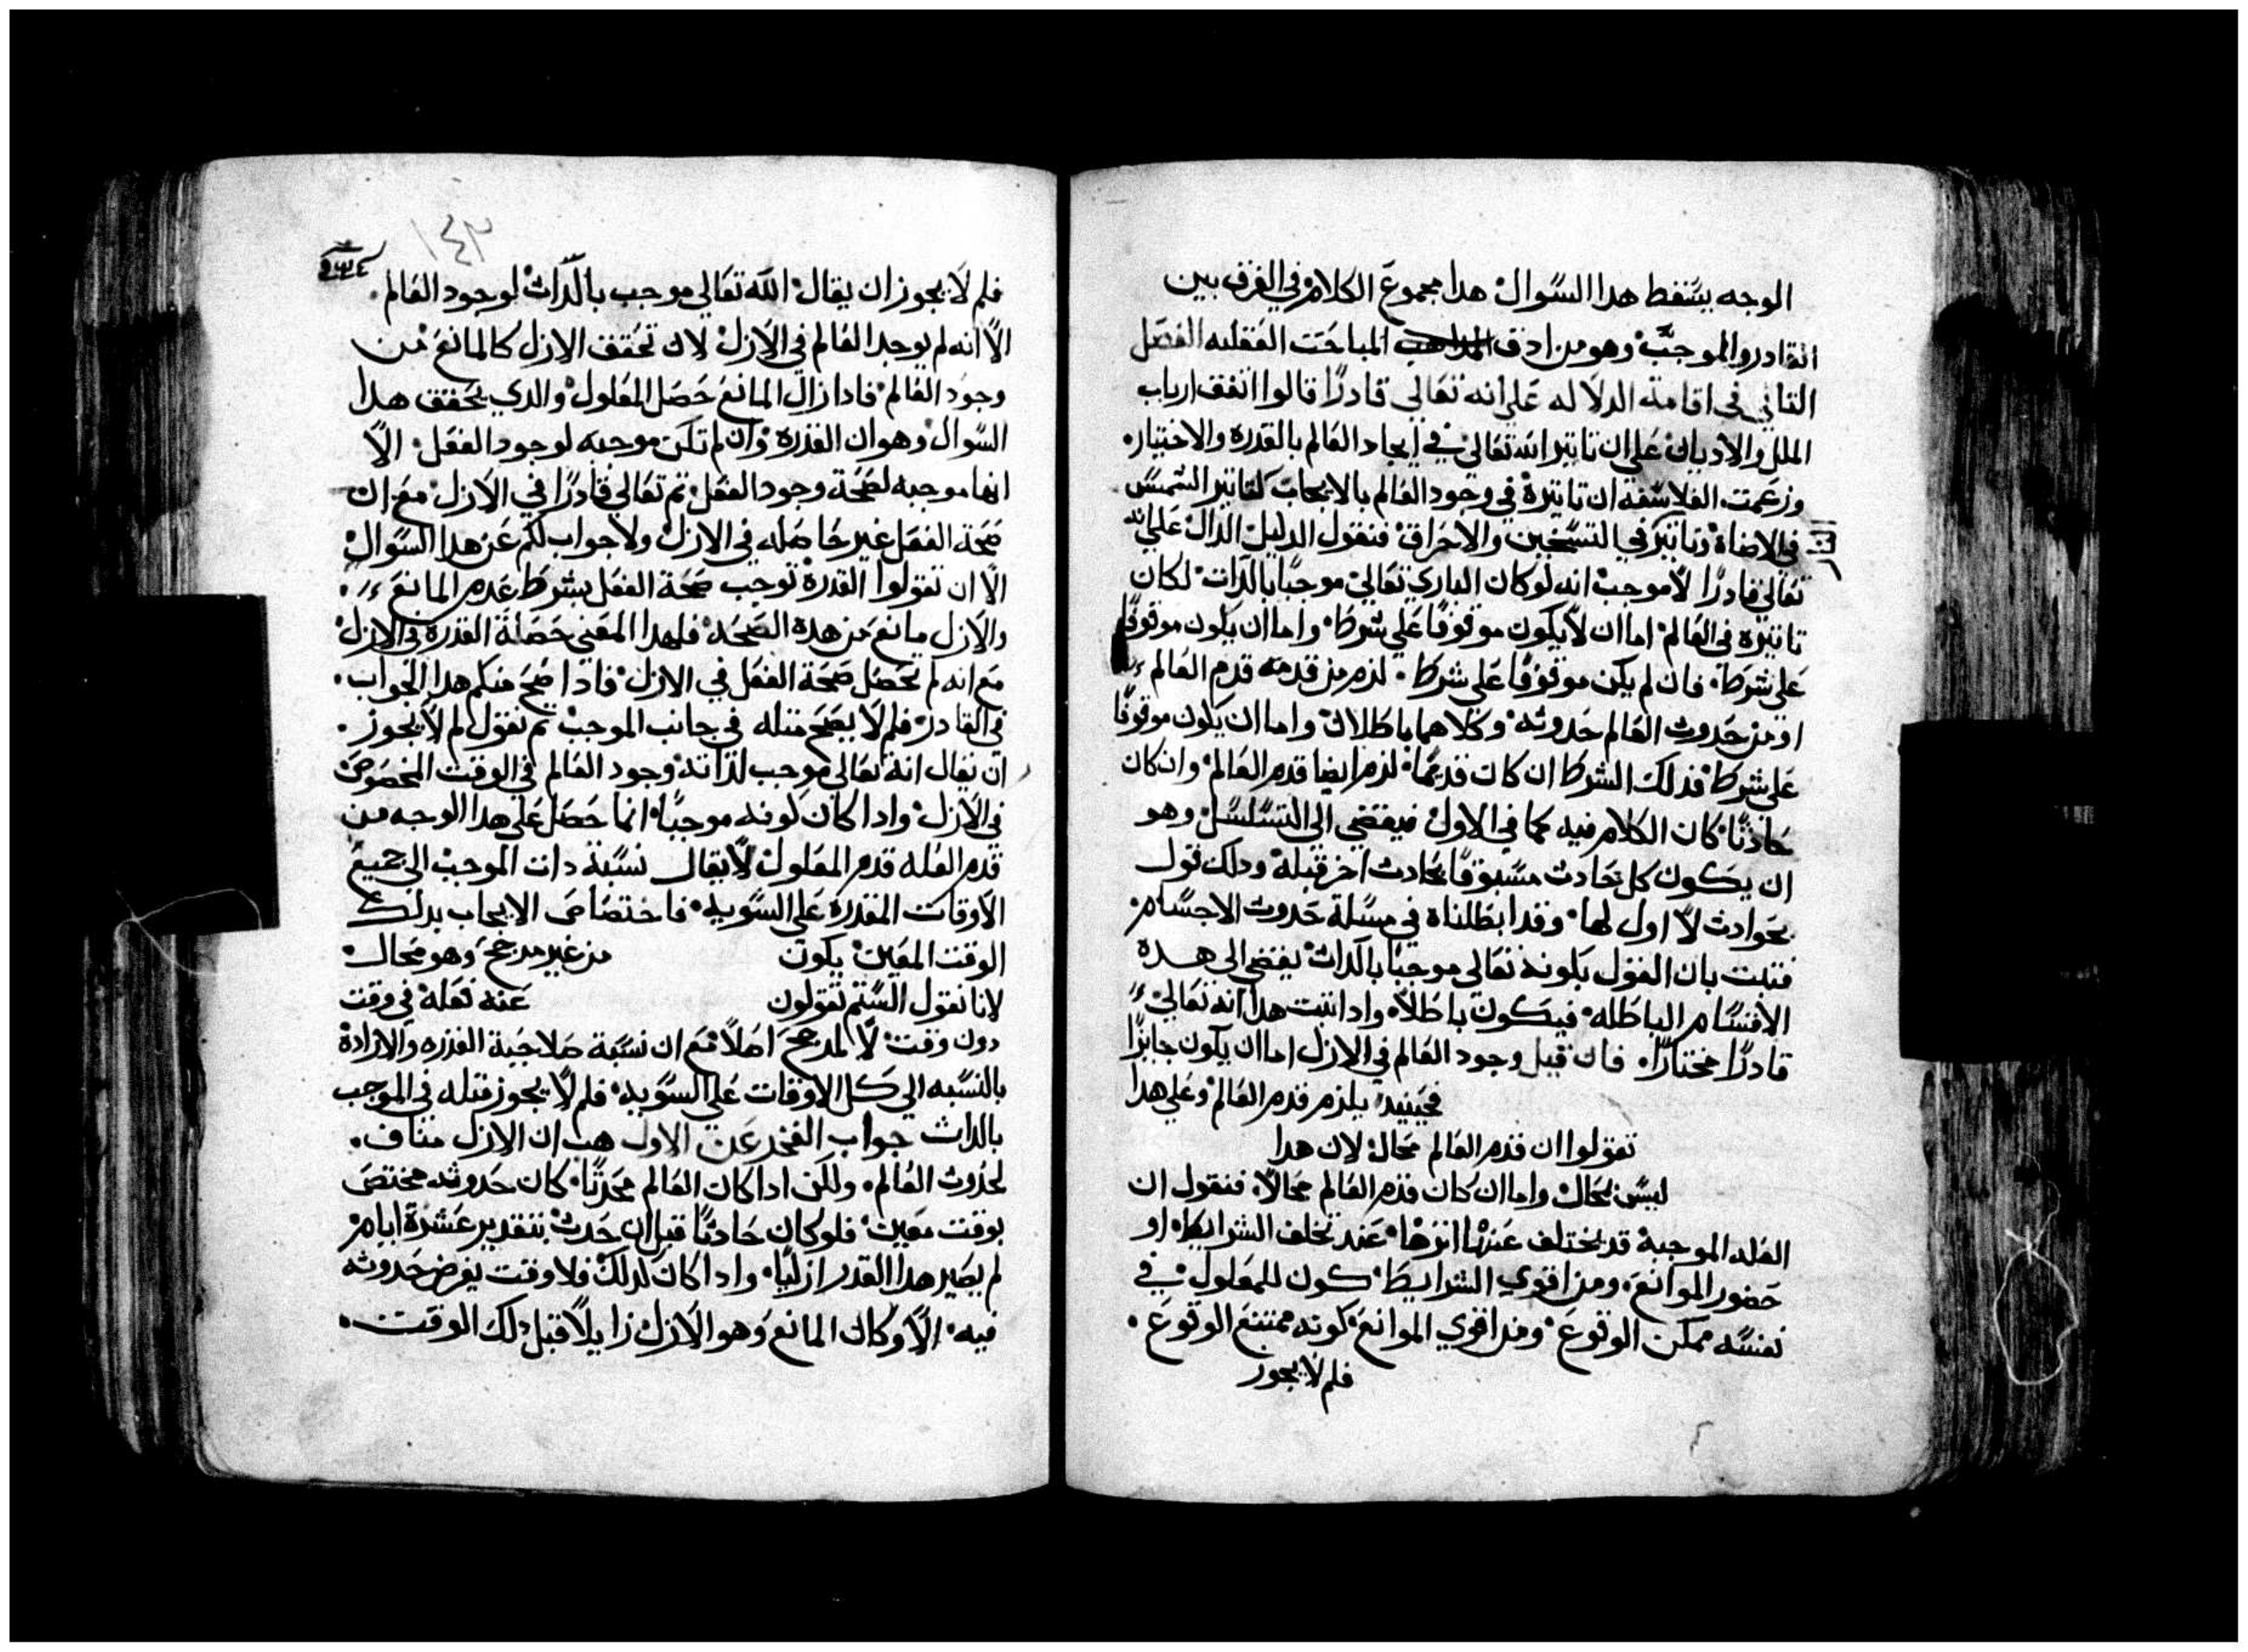 الوجه يسقط هدا السوال هدا مجموع الكلام في الفرق بين
القادر والموجب وهو من ادق المباحت العقليه الفصل
التاني في اقامة الدلاله على انه تعالى قادرًا قالوا اتفق ارباب
الملل والاديان على ان تاتير الله تعالى في ايجاد العالم بالقدره والاختيار
وزعمت الفلاسفه ان تاتيره في وجود العالم بالايجاب كتاتير الشمس
في الاضاة وتاتير في التسخين والاحراق فنقول الدليل الدال على انه
تعالى قادرًا لا موجب انه لو كان الباري تعالى موجبًا بالدات لكان
تاتيره في العالم اما ان لا يكون موقوفًا على شرط واما ان يكون موقوفًا
على شرط فان لم يكن موقوفًا على شرط لزم من قدمه قدم العالم
او من حدوث العالم حدوثه وكلاهما باطلان واما ان يكون موقوفًا
على شرط فدلك الشرط ان كان قديمًا لزم ايضا قدم العالم وان كان
حادثًا كان الكلام فيه كما في الاول فيفضي الى التسلسل وهو
ان يكون كل حادث مسبوقًا بحادث اخر قبله ودلك قول
بحوادث لا اول لها وقد ابطلناه في مسلة حدوث الاجسام
فتبت بان القول بكونه تعالى موجبًا بالدات يفضي الى هده
الاقسام الباطله فيكون باطلًا واداتبت هدا انه تعالى
قادرًا مختارًا فان قيل وجود العالم في الازل اما ان يكون جايزًا
فحينيد يلزم قدم العالم وعلى هدا
تقولوا ان قدم العالم محال لان هدا
ليس بمحال واما ان كان قدم العالم محالًا فنقول ان
العله الموجبة قد يختلف عنها اترها عند تخلف الشرايط او
حضور الموانع ومن اقوي الشرايط كون المعلول في
نفسه ممكن الوقوع ومن اقوي الموانع كونه ممتنع الوقوع
فلم لا يجوز
١٤٢
فلم لا يجوز ان يقال الله تعالى موجب بالدات لوجود العالم
الا انه لم يوجد العالم في الازل لان تحقق الازل كالمانع من
وجود العالم فادا زال المانع حصل المعلول والدي يحقق هدا
السوال وهو ان القدره وان لم تكن موجبه لوجود الفعل الا
انها موجبه لصحة وجود الفعل تم تعالى قادرًا في الازل مع ان
صحة الفعل غير حاصله في الازل ولا جواب لكم عن هدا السوال
الا ان تقولوا القدرة توجب صحة الفعل بشرط عدم المانع
والازل مانع من هده الصحه فلهدا المعني حصلة القدره في الازل
مع انه لم تحصل صحة الفعل في الازل فادا صح منكم هدا الجواب
في القادر فلم لا يصح متله في جانب الموجب تم نقول لم لا يجوز
ان يقال انه تعالى موجب لداته وجود العالم في الوقت المخصوص
في الازل وادا كان كونه موجبًا انما حصل على هدا الوجه من
قدم العله قدم المعلول لا يقال نسبة دات الموجب الى جميع
الاوقات المقدره على السويه فاختصاص الايجاب بدلك
الوقت المعين يكون من غير مرجح وهو محال
لانا نقول الستم تقولون عنه فعله في وقت
دون وقت لا لمرجح اصلًا مع ان نسبة صلاحية القدره والارادة
بالنسبه الي كل الاوقات على السويه فلم لا يجوز متله في الموجب
بالدات جواب الفخر عن الاول هب ان الازل مناف
لحدوث العالم ولكن ادا كان العالم محدثًا كان حدوثه مختص
بوقت معين فلو كان حادثًا قبل ان حدث بتقدير عشرة ايام
لم يصير هدا القدر ازليًا وادا كان كدلك فلا وقت يفرض حدوثه
فيه الا وكان المانع وهو الازل زايلًا قبل دلك الوقت